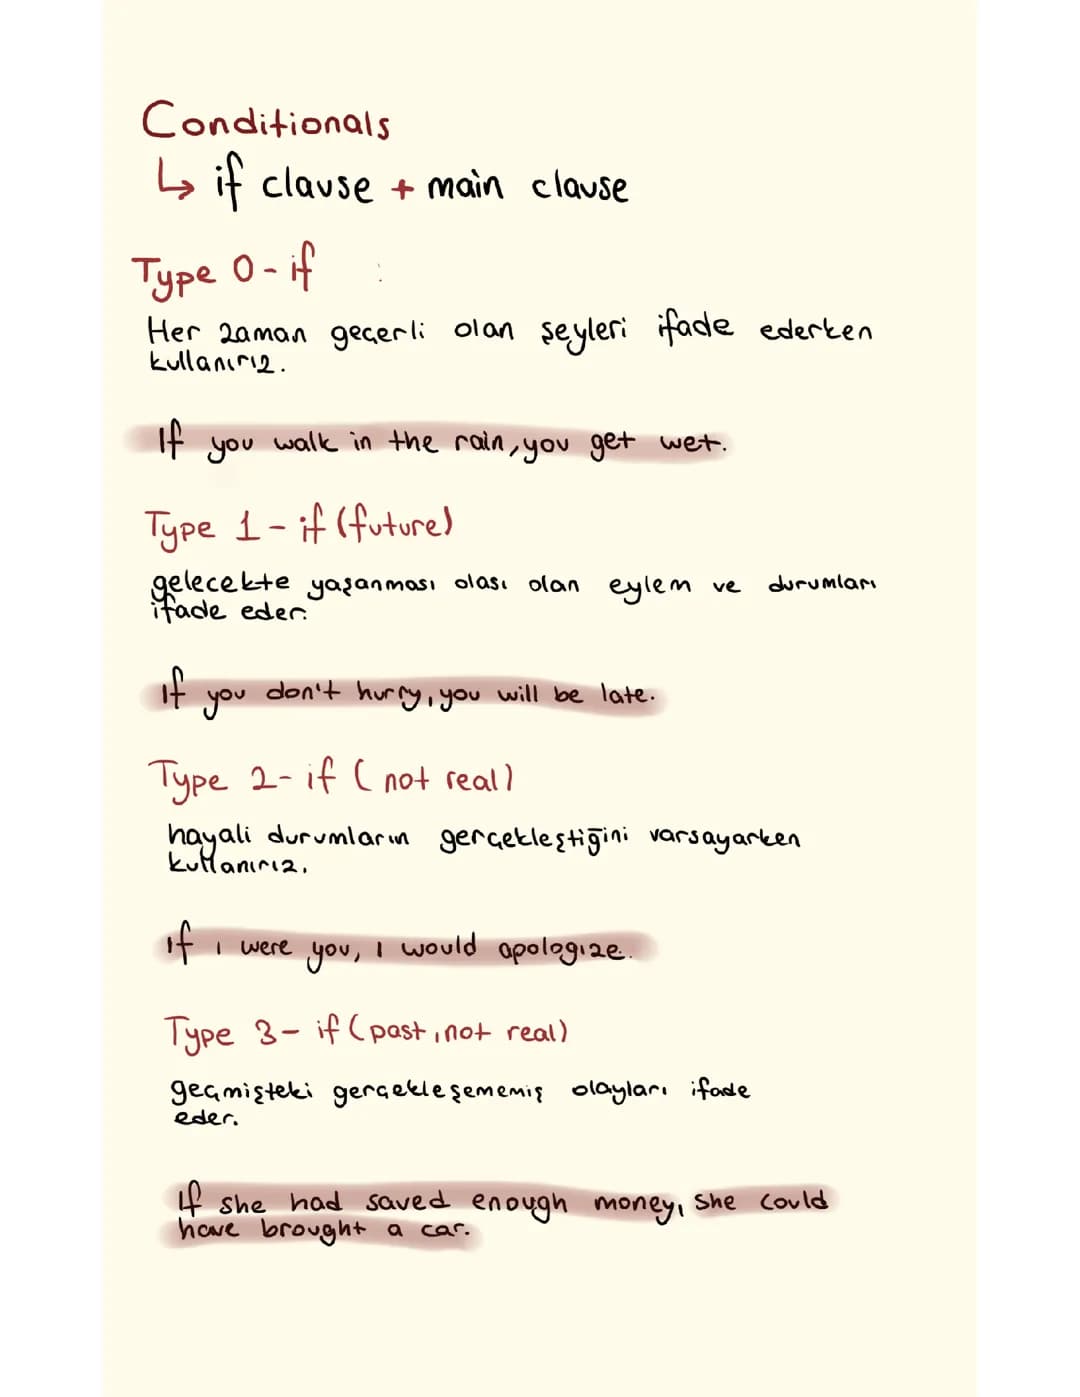 Conditionals
↳ if clause + main clause
Type 0 - if
Her zaman geçerli olan şeyleri ifade ederken
kullanırız.
If you walk in the rain, you get wet.
Type 1 - if (future)
gelecekte yaşanması olası olan eylem ve durumları
ifade eder.
if you don't hurry, you will be late.
Type 2 - if (not real)
hayali durumların gerçekleştiğini varsayarken
kullanırız.
if i were you, i would apologize.
Type 3 - if (past, not real)
geçmişteki gerçekleşememiş olayları ifade
eder.
If she had saved enough money, she could
have brought a car.